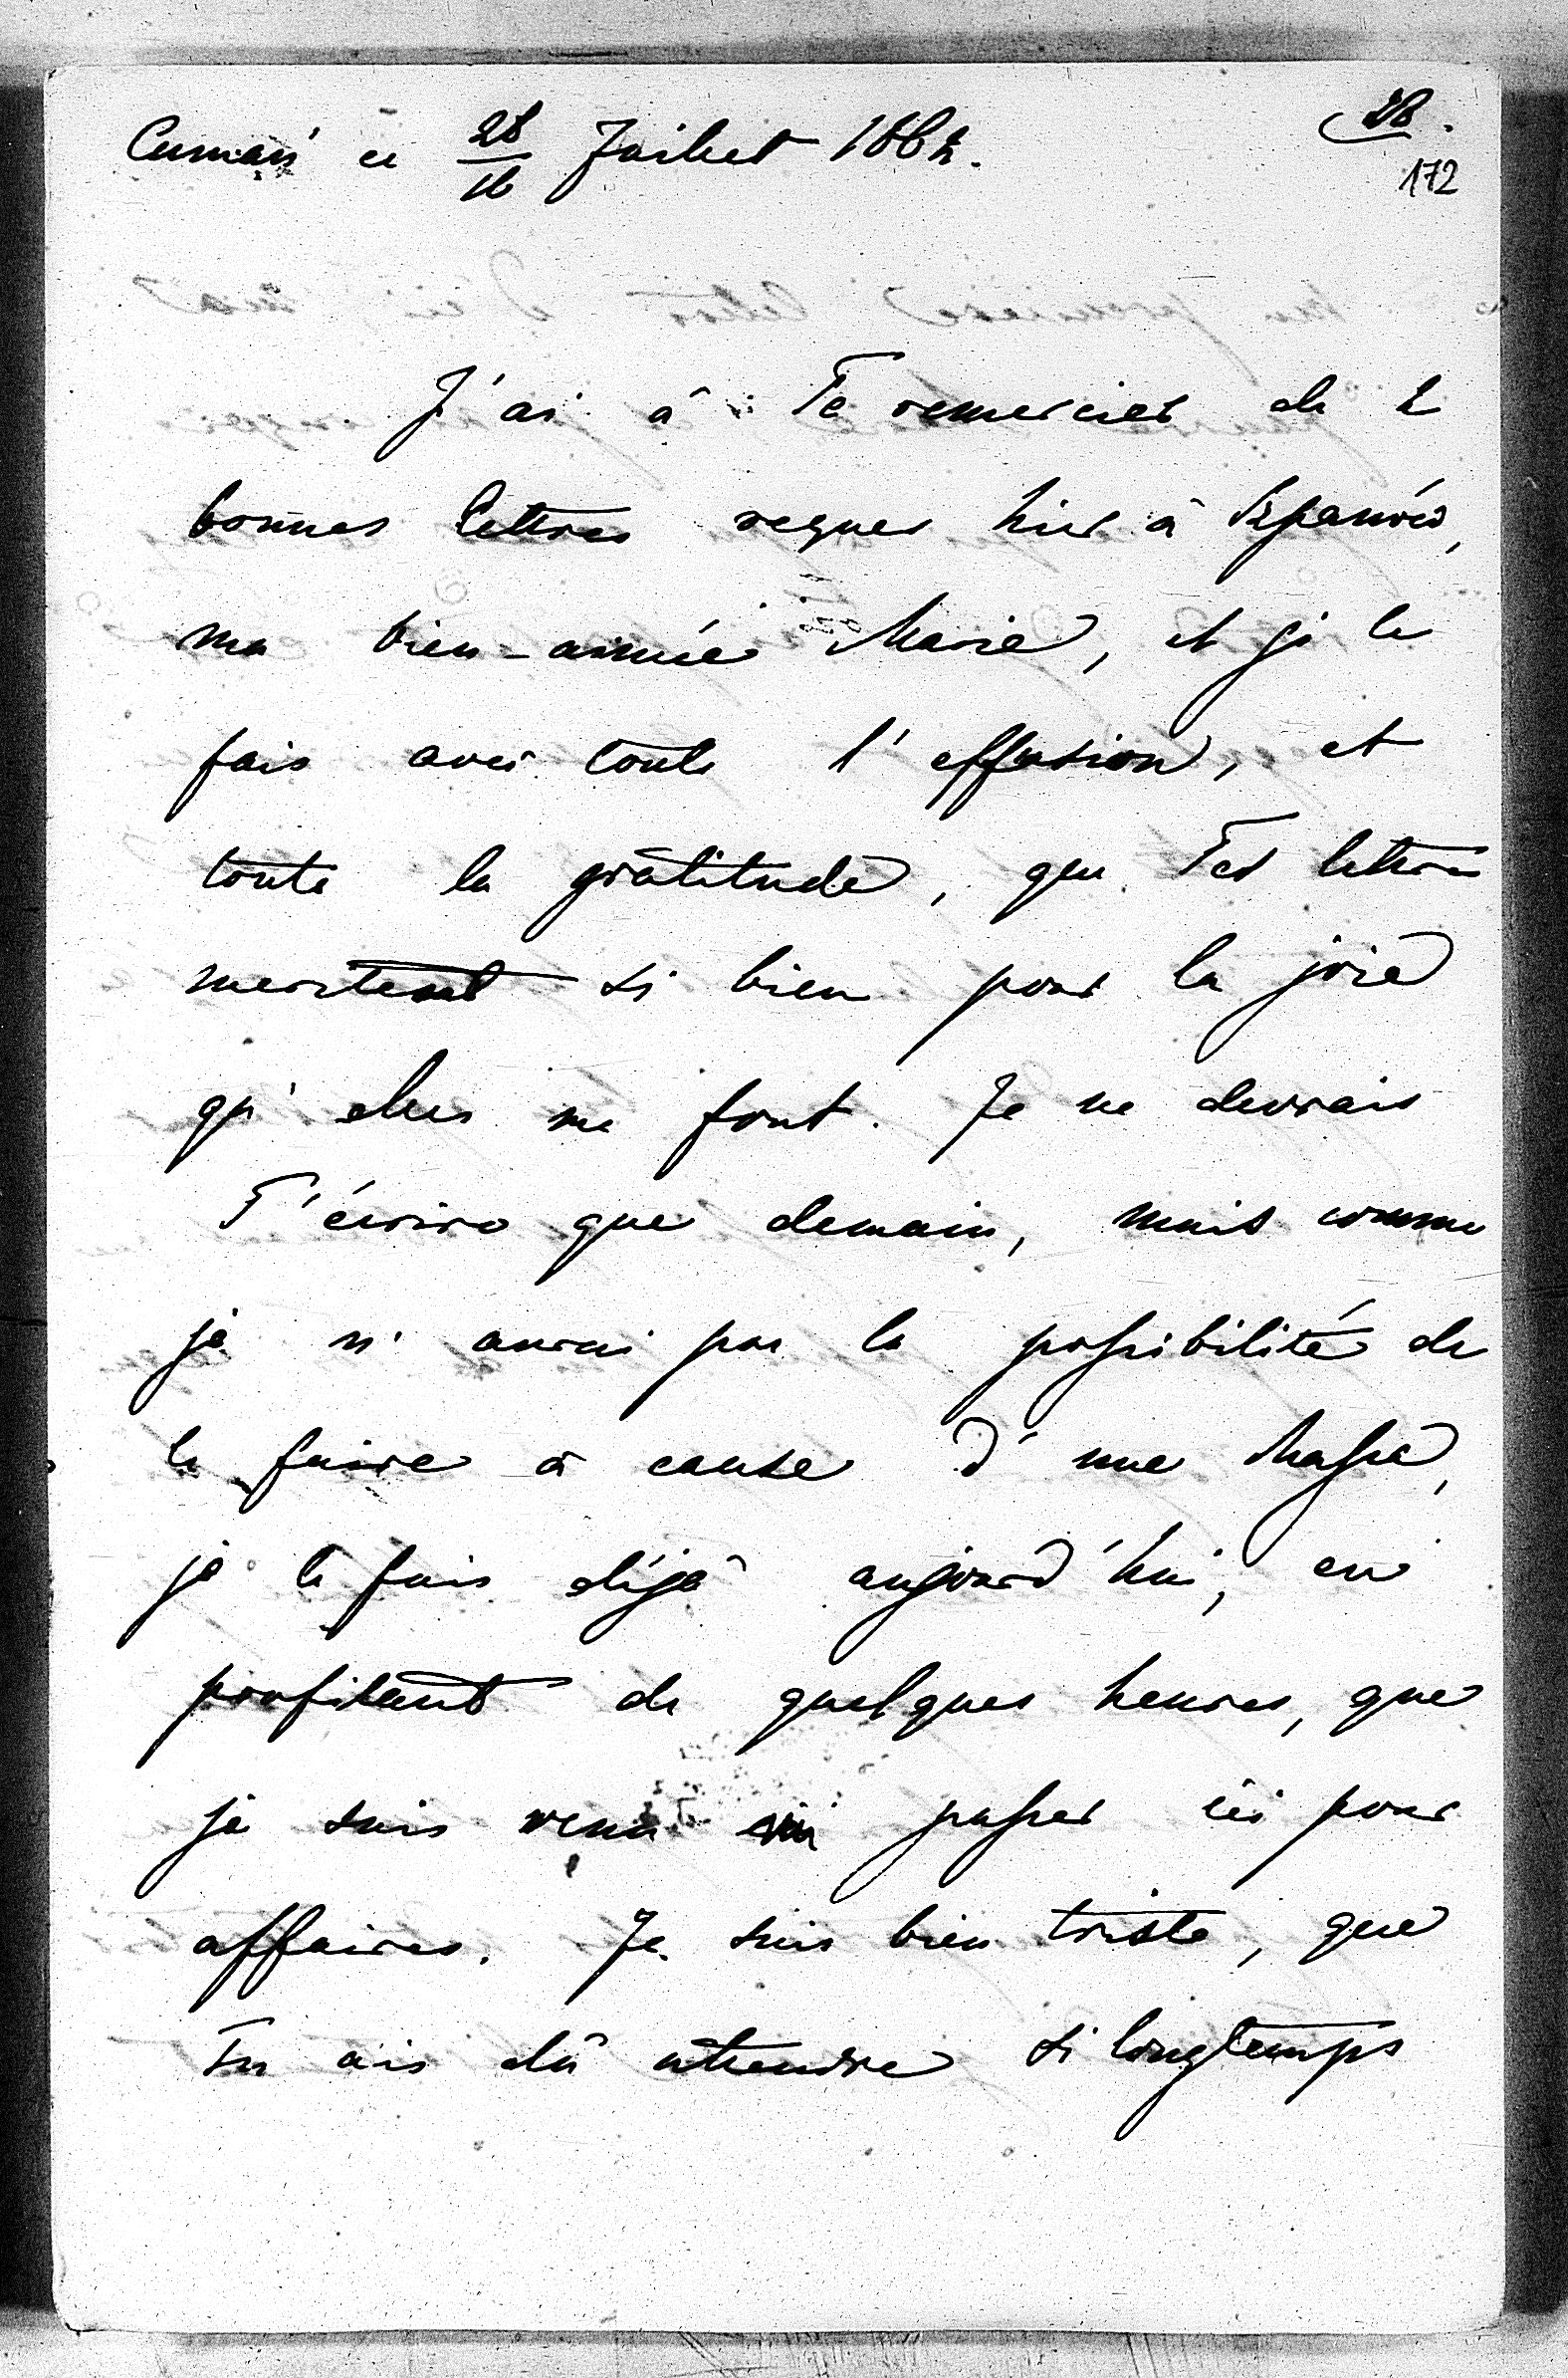 Cumań ce 28/16 Juillet 188
28.
172
J'ai à Te remercier de 2
bonnes lettres reçues hier à Szpanów,
ma bien-aimée Marie, et je le
fais avec toute l'effusion, et
toute la gratitude, que Tes lettres
meritent si bien pour la joie
qu'elles me font. Je ne devrais
T'écrire que demain, mais comme
je n'aurai pas la possibilité de
le faire à cause d'une chasse,
je le fais déjà aujourd'hui, en
profitant de quelques heures, que
je suis venu passer ici pour
affaires. Je suis bien triste, que
Tu ais dû attendre si longtemps